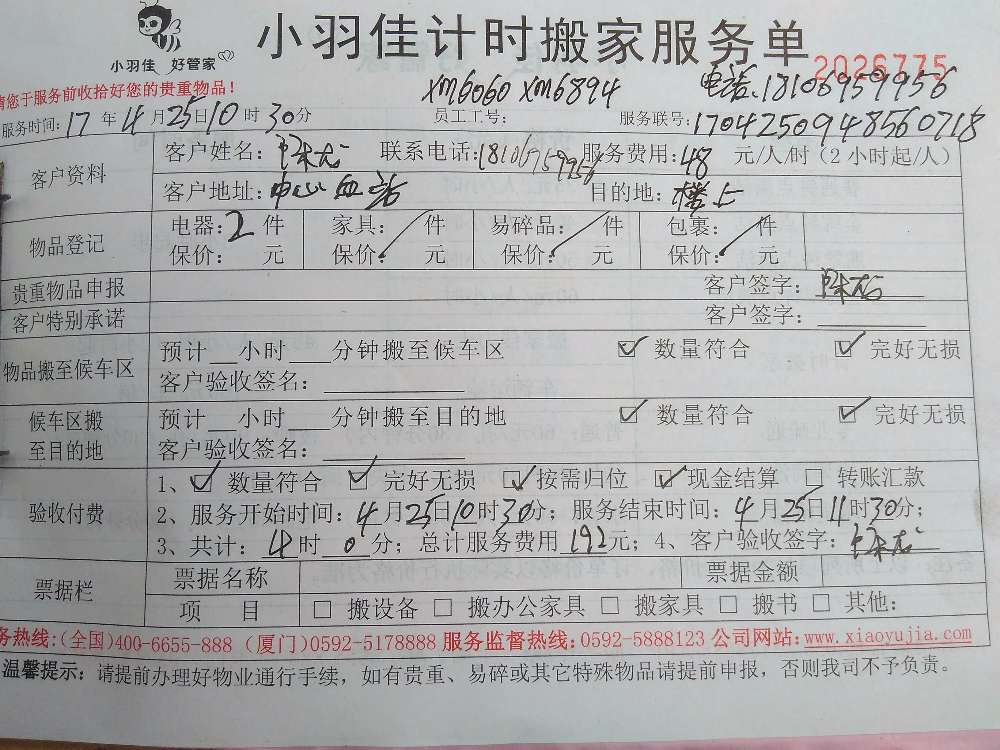 小羽佳 好管家
小羽佳计时搬家服务单
2026775
请您于服务前收拾好您的贵重物品!
XM6060 XM6894
电话.18106959956
服务时间: 17 年 4 月 25 日 10 时 30 分 员工工号: 服务联号: 1704250948560718
客户资料
客户姓名: 联系电话: 18106959956 服务费用: 48 元/人/时 (2小时起/人)
客户地址: 中心血站 目的地: 楼上
物品登记
电器: 2 件 家具: 件 易碎品: 件 包裹: 件
保价: 元 保价: 元 保价: 元 保价: 元
贵重物品申报 客户签字:
客户特别承诺 客户签字:
物品搬至候车区
预计__小时___分钟搬至候车区 ☑ 数量符合 ☑ 完好无损
客户验收签名:
候车区搬至目的地
预计__小时___分钟搬至目的地 ☑ 数量符合 ☑ 完好无损
客户验收签名:
验收付费
1、☑ 数量符合 ☑ 完好无损 ☑ 按需归位 ☑ 现金结算 □ 转账汇款
2、服务开始时间: 4 月 25 日 10 时 30 分; 服务结束时间: 4 月 25 日 11 时 30 分;
3、共计: 4 时 0 分; 总计服务费用 192 元; 4、客户验收签字:
票据栏
票据名称 票据金额
项 目 □ 搬设备 □ 搬办公家具 □ 搬家具 □ 搬书 □ 其他:
务热线:(全国)400-6655-888 (厦门)0592-5178888 服务监督热线: 0592-5888123 公司网站: www.xiaoyujia.com
温馨提示: 请提前办理好物业通行手续, 如有贵重、易碎或其它特殊物品请提前申报, 否则我司不予负责。